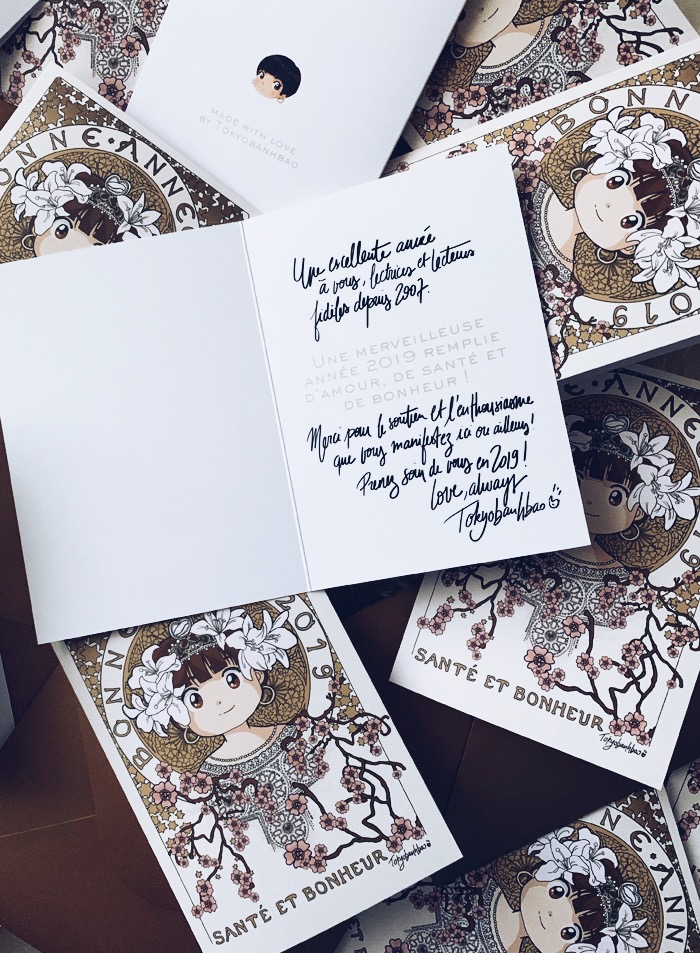 MADE WITH LOVE
BY TOKYOBANHBAO
BONNE·ANNÉE
BONNE
2019
Une excellente année
à vous, lectrices et lecteurs
fidèles depuis 2007.
UNE MERVEILLEUSE
ANNÉE 2019 REMPLIE
D'AMOUR, DE SANTÉ ET
DE BONHEUR !
Merci pour le soutien et l'enthousiasme
que vous manifestez ici ou ailleurs!
Prenez soin de vous en 2019!
love, always
Tokyobanhbao
NE·ANNÉE
SANTÉ ET BONHEUR
Tokyobanhbao
BONNE
2019
SANTÉ ET BONHEUR
Tokyobanhbao
BONNE·ANNÉE